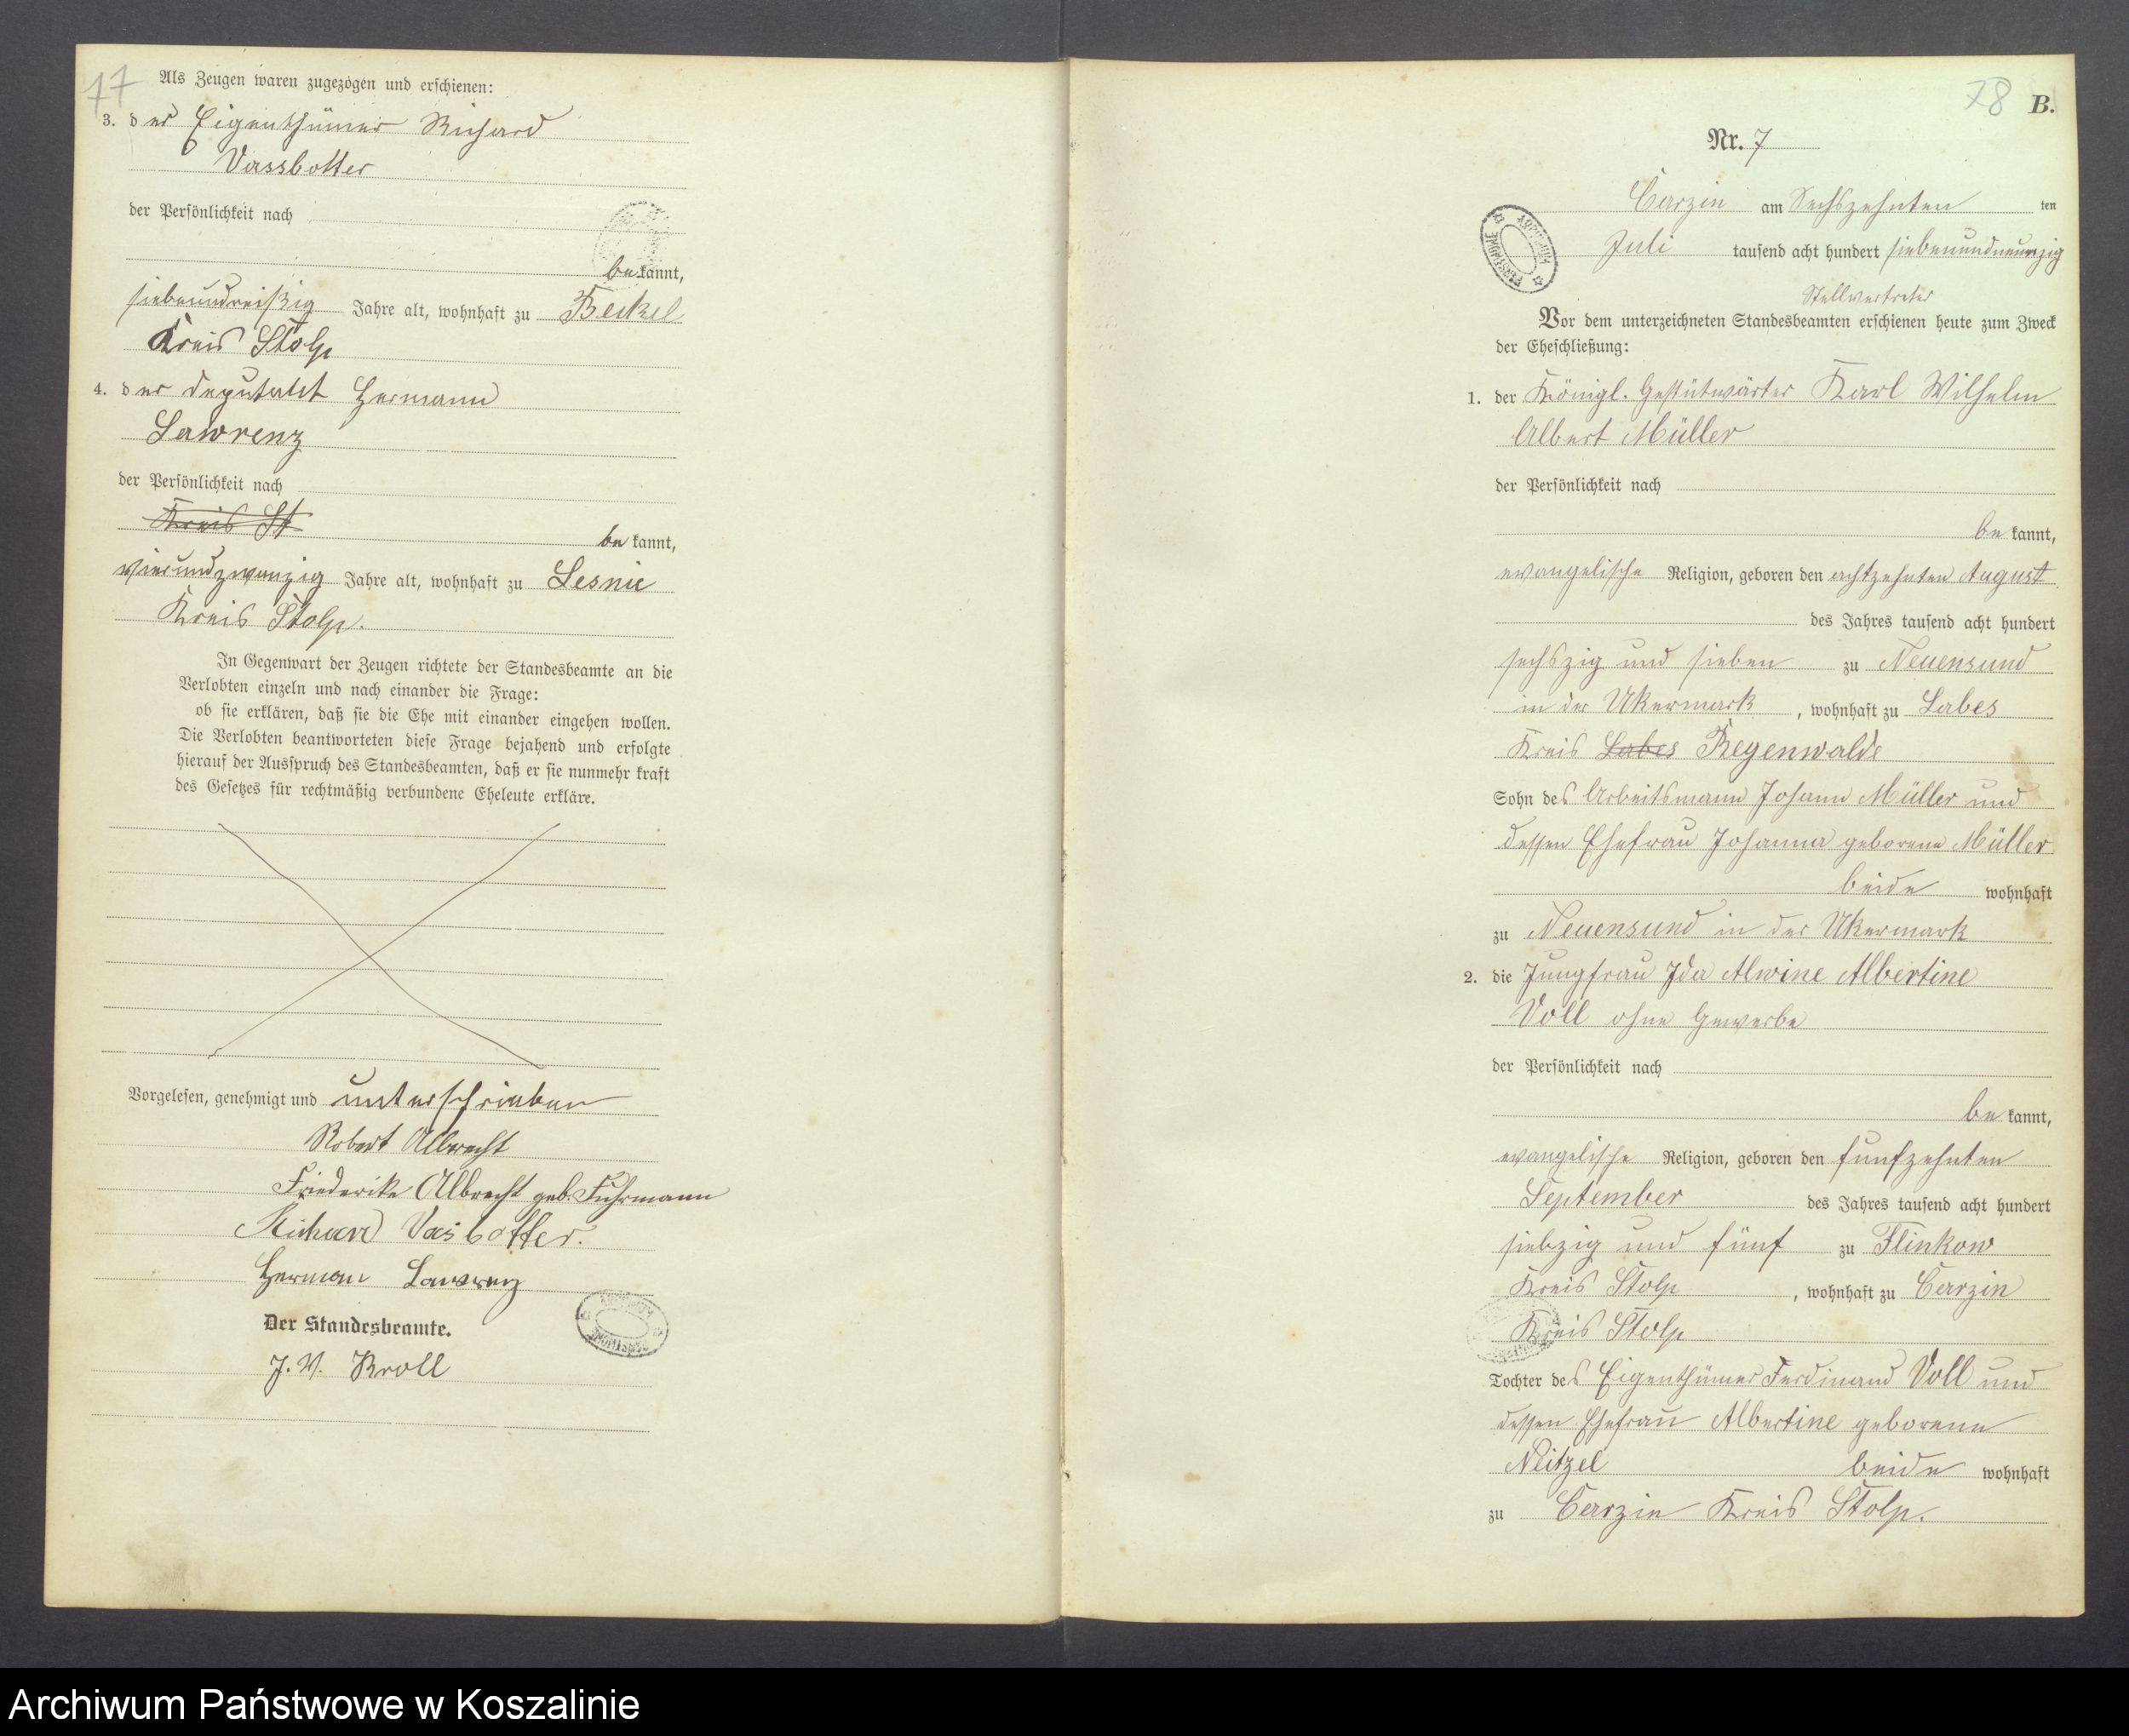 77
Als Zeugen waren zugezogen und erschienen:
3. der Eigenthümer Richard
Vassbotter
der Persönlichkeit nach
bekannt,
siebenundreißig Jahre alt, wohnhaft zu Beckel
Kreis Stolp
4. der Deputatist Hermann
Lawrenz
der Persönlichkeit nach
Kreis St
bekannt,
vierundzwanzig Jahre alt, wohnhaft zu Lesnie
Kreis Stolp.
In Gegenwart der Zeugen richtete der Standesbeamte an die
Verlobten einzeln und nach einander die Frage:
ob sie erklären, daß sie die Ehe mit einander eingehen wollen.
Die Verlobten beantworteten diese Frage bejahend und erfolgte
hierauf der Ausspruch des Standesbeamten, daß er sie nunmehr kraft
des Gesetzes für rechtmäßig verbundene Eheleute erkläre.
Vorgelesen, genehmigt und unterschrieben
Robert Albrecht
Friederike Albrecht geb. Fuhrmann
Richard Vasbotter.
Herman Lawrenz
Der Standesbeamte.
J. V. Kroll
78
B.
Nr. 7
Carzin am Sechszehnten ten
Juli tausend acht hundert siebenundneunzig
Stellvertreter
Vor dem unterzeichneten Standesbeamten erschienen heute zum Zweck
der Eheschließung:
1. der Königl. Gestütwärter Karl Wilhelm
Albert Müller
der Persönlichkeit nach
bekannt,
evangelische Religion, geboren den achtzehnten August
des Jahres tausend acht hundert
sechszig und sieben zu Neuensund
in der Ukermark, wohnhaft zu Labes
Kreis Labes Regenwalde
Sohn des Arbeitsmann Johann Müller und
dessen Ehefrau Johanna geborene Müller
beide wohnhaft
zu Neuensund in der Ukermark
2. die Jungfrau Ida Alwine Albertine
Voll ohne Gewerbe
der Persönlichkeit nach
bekannt,
evangelische Religion, geboren den fünfzehnten
September des Jahres tausend acht hundert
siebzig und fünf zu Flinkow
Kreis Stolp, wohnhaft zu Carzin
Kreis Stolp
Tochter des Eigenthümer Ferdinand Voll und
dessen Ehefrau Albertine geborene
Neitzel beide wohnhaft
zu Carzin Kreis Stolp.
Archiwum Państwowe w Koszalinie